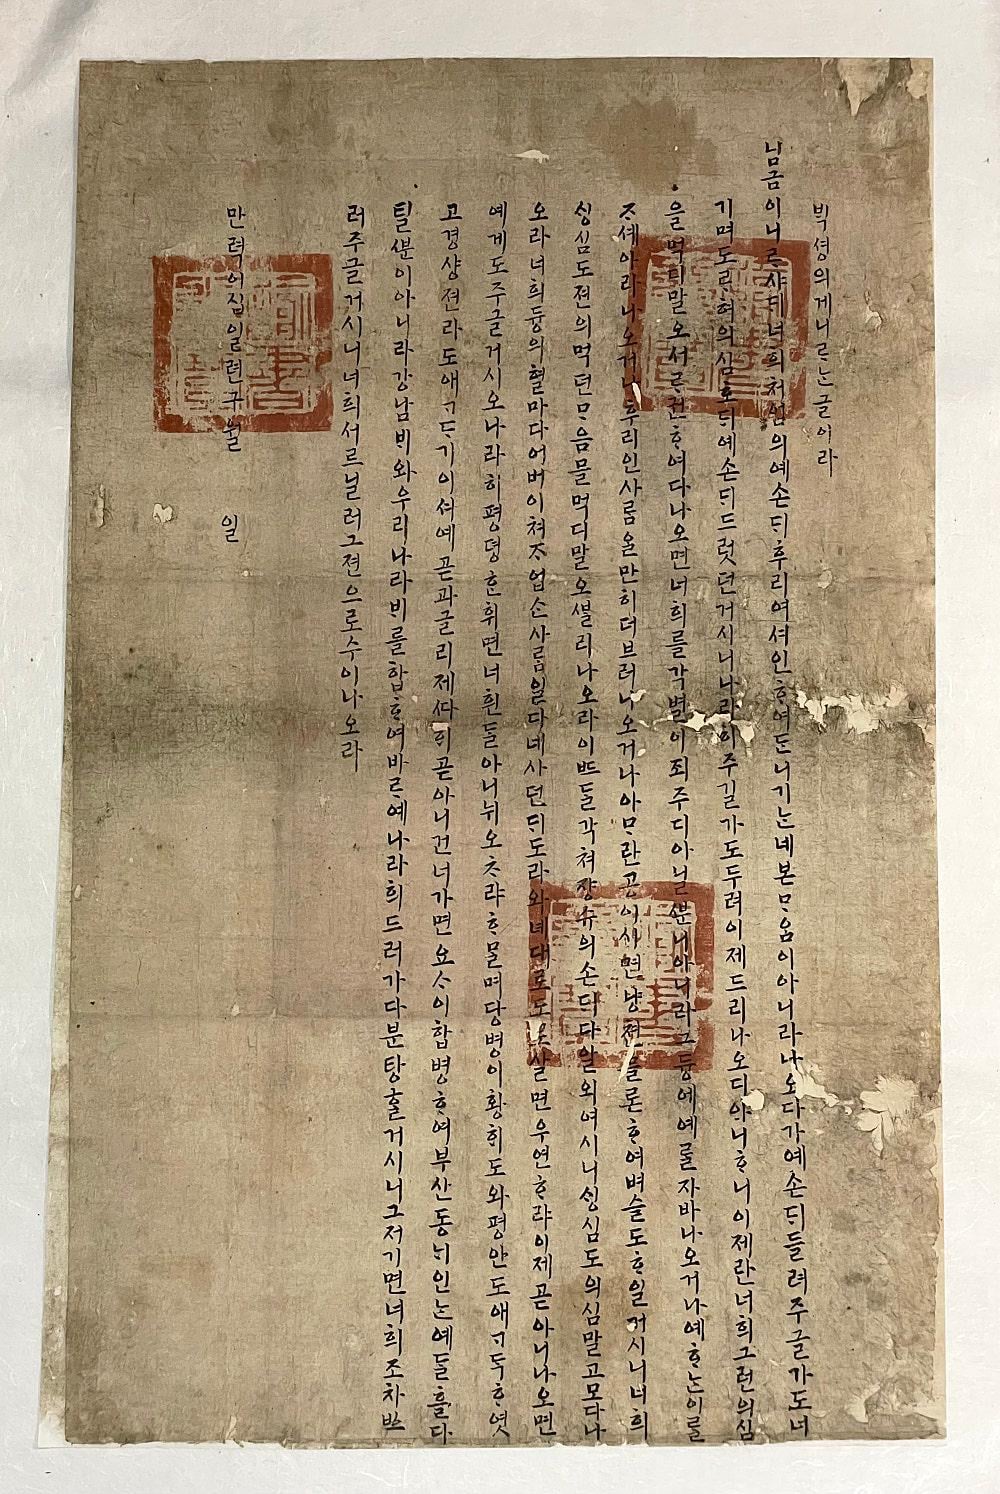 빅셩의게니ᄅᆞᄂᆞᆫ글이라
님금이니ᄅᆞ샤ᄃᆡ너희처엄의예손ᄃᆡ후리여셔인ᄒᆞ여ᄃᆞᆫ니기ᄂᆞᆫ네본ᄆᆞᄋᆞᆷ이아니라나오다가예손ᄃᆡ들려주글가도너
기며도ᄅᆞ혀의심호ᄃᆡ예손ᄃᆡ드럿던거시니나라히주길가도두려이제드리나오디아니ᄒᆞ니이제란너희그런의심
을먹디말오서ᄅᆞ권ᄒᆞ여다나오면너희를각별이죄주디아닐ᄲᅮᆫ니아니라그듕에예ᄅᆞᆯ자바나오거나예ᄒᆞᄂᆞᆫ이ᄅᆞᆯ
ᄌᆞ셰아라나오거나후리인사ᄅᆞᆷ을만히더브러나오거나아ᄆᆞ란공이시면냥쳔믈론ᄒᆞ여벼슬도ᄒᆞ일거시니너희
ᄉᆡᆼ심도젼의먹던ᄆᆞᄋᆞᆷ믈먹디말오ᄲᆞᆯ리나오라이ᄠᅳ들각쳐쟝슈의손ᄃᆡ다알외여시니ᄉᆡᆼ심도의심말고모다나
오라너희듕의혈마다어버이쳐ᄌᆞ업ᄉᆞᆫ사ᄅᆞᆷ일다네사던ᄃᆡ도라와녜대로도로살면우연ᄒᆞ랴이제곧아니나오면
예게도주글거시오나라히평뎡ᄒᆞᆫ휘면너흰들아니뉘오ᄎᆞ랴ᄒᆞᄆᆞᆯ며당병이황ᄒᆡ도와평안도애ᄀᆞ득ᄒᆞ엿
고경샹젼라도애ᄀᆞᄃᆞ기이셔예곧과글리제ᄯᅡᄒᆡ곧아니건너가면요ᄉᆞ이합병ᄒᆞ여부산동ᄂᆡ인ᄂᆞᆫ예ᄃᆞᆯ흘다
틸ᄲᅮᆫ이아니라강남ᄇᆡ와우리나라ᄇᆡ를합ᄒᆞ여바ᄅᆞ예나라희드러가다분탕ᄒᆞᆯ거시니그저기면너희조차ᄡᅳ
러주글거시니너희서ᄅᆞ닐러그젼으로수이나오라
만력이십일련구월 일